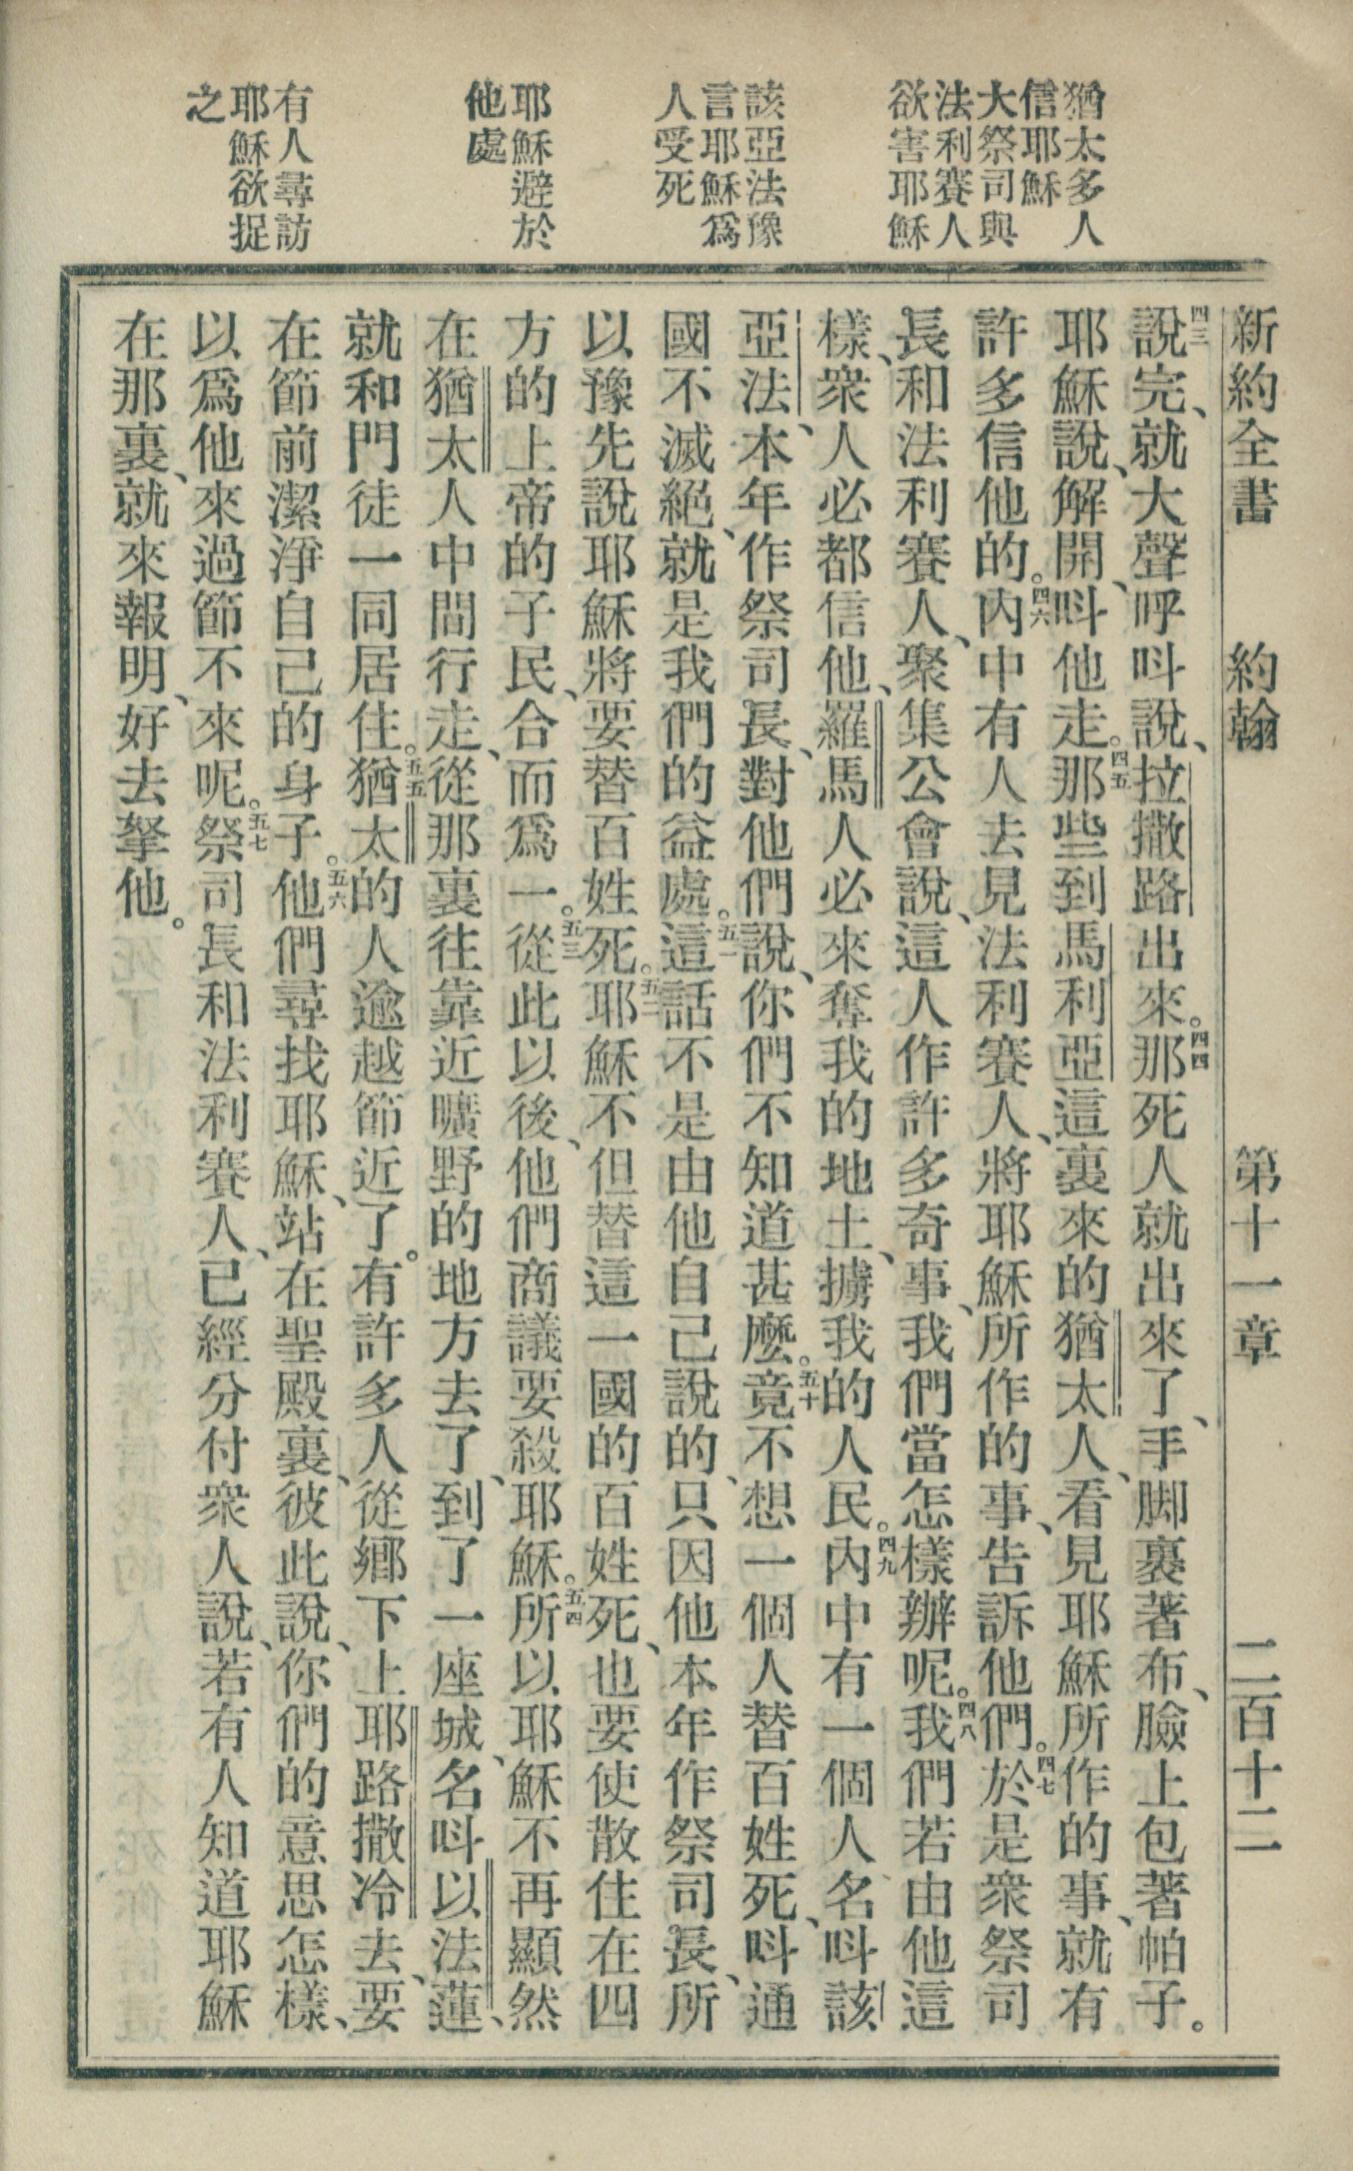 新約全書　約翰　第十一章　二百十二
猶太多人
信耶穌
大祭司與
法利賽人
欲害耶穌
該亞法豫
言耶穌爲
人受死
耶穌避於
他處
有人尋訪
耶穌欲捉
之
四三說完、就大聲呼呌說、拉撒路出來。四四那死人就出來了、手脚裹著布、臉上包著帕子。
耶穌說、解開、呌他走。四五那些到馬利亞這裏來的猶太人、看見耶穌所作的事、就有
許多信他的。四六內中有人去見法利賽人、將耶穌所作的事、告訴他們。四七於是衆祭司
長和法利賽人、聚集公會說、這人作許多奇事、我們當怎樣辦呢。四八我們若由他這
樣、衆人必都信他、羅馬人必來奪我的地土、擄我的人民。四九內中有一個人名呌該
亞法、本年作祭司長、對他們說、你們不知道甚麼。五十竟不想一個人替百姓死、呌通
國不滅絕、就是我們的益處。五一這話不是由他自己說的、只因他本年作祭司長、所
以豫先說耶穌將要替百姓死。五二耶穌不但替這一國的百姓死、也要使散住在四
方的上帝的子民、合而爲一。五三從此以後、他們商議要殺耶穌。五四所以耶穌不再顯然
在猶太人中間行走、從那裏往靠近曠野的地方去了、到了一座城、名呌以法蓮、
就和門徒一同居住。五五猶太的人逾越節近了。有許多人從鄉下上耶路撒冷去、要
在節前潔淨自己的身子。五六他們尋找耶穌、站在聖殿裏、彼此說、你們的意思怎樣、
以爲他來過節不來呢。五七祭司長和法利賽人、已經分付衆人說、若有人知道耶穌
在那裏、就來報明、好去拏他。